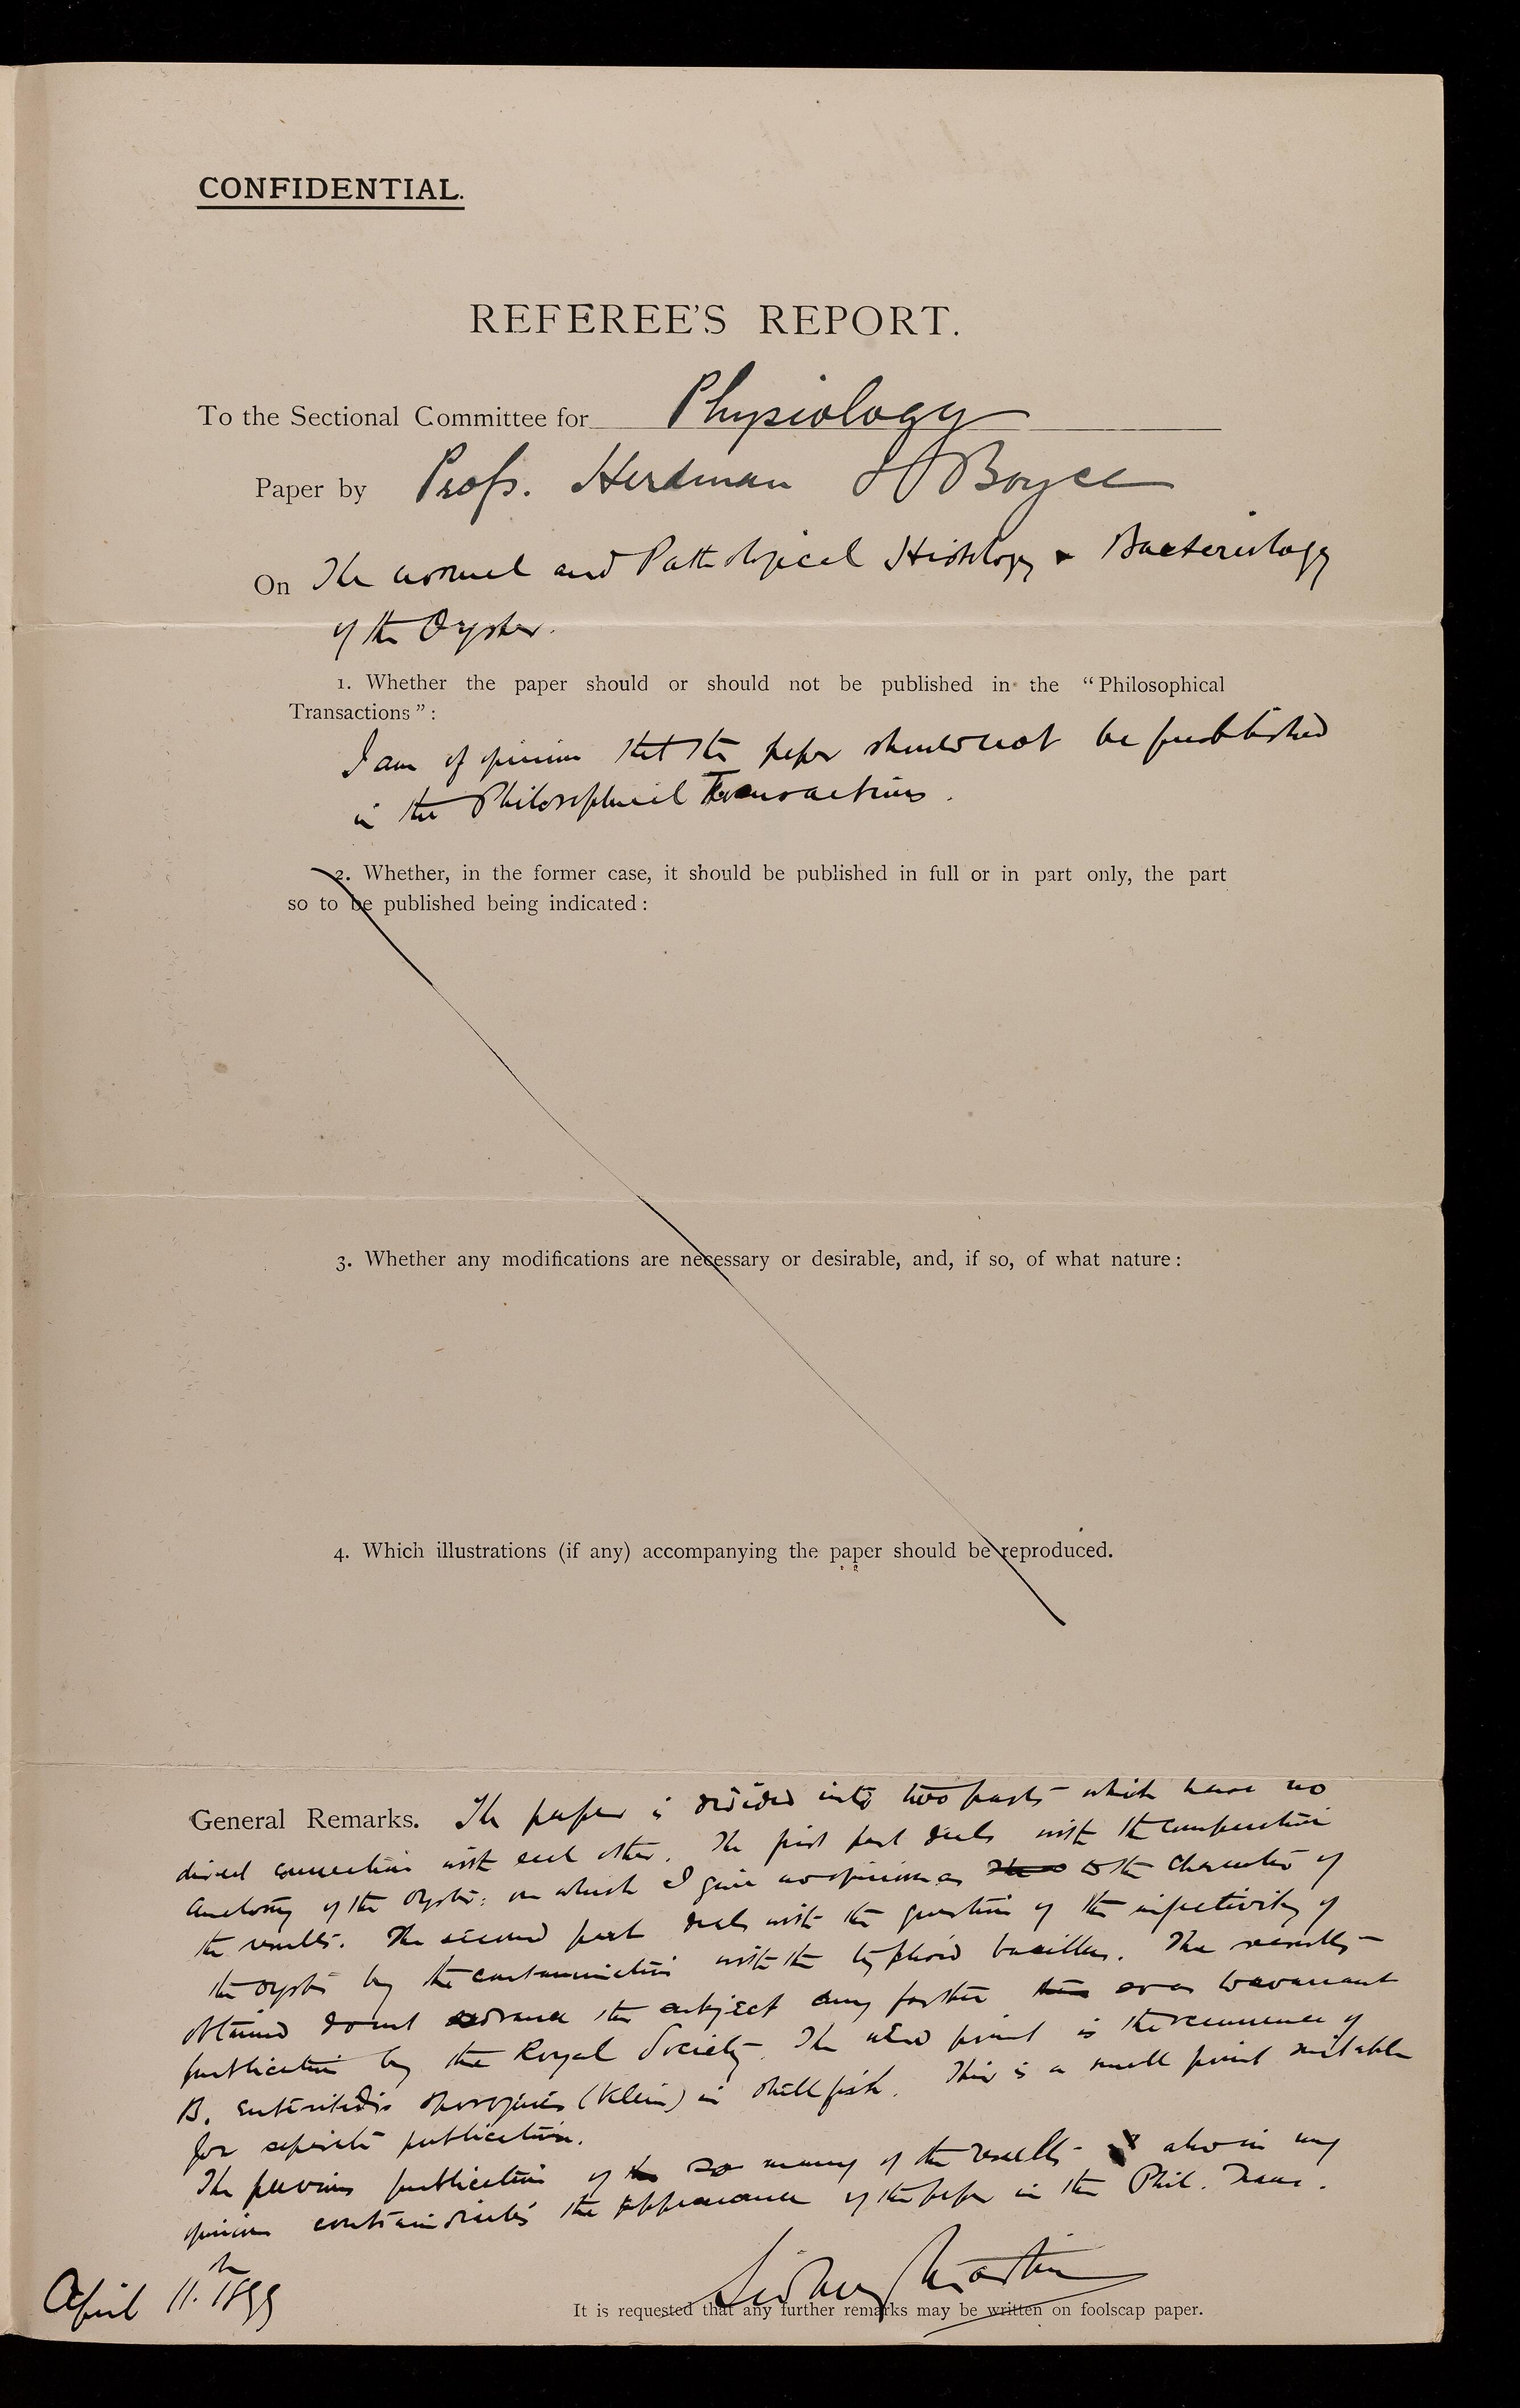 CONFIDENTIAL.
REFEREE'S REPORT.
To the Sectional Committee for Physiology
Paper by Profs. Herdman & Boyce
On The normal and Pathological Histology & Bacteriology
of the Oyster.
1. Whether the paper should or should not be published in the “Philosophical
Transactions”:
I am of opinion that the paper should not be published
in the Philosophical Transactions.
2. Whether, in the former case, it should be published in full or in part only, the part
so to be published being indicated:
3. Whether any modifications are necessary or desirable, and, if so, of what nature:
4. Which illustrations (if any) accompanying the paper should be reproduced.
General Remarks. The paper is divided into two parts which have no
direct connection with each other. The first part deals with the comparative
anatomy of the oyster: on which I give no opinion as to the character of
the results. The second part deals with the question of the infectivity of
the oyster by the contamination with the typhoid bacillus. The results
obtained do not advance the subject any further so as to warrant
publication by the Royal Society. The new point is the recurrence of
B. enteritidis sporogenes (Klein) in shell fish. This is a small point suitable
for separate publication.
The previous publication of so many of the results also in my
opinion contraindicates the appearance of the paper in the Phil. Trans.
Sidney Martin
April 11th 1899
It is requested that any further remarks may be written on foolscap paper.